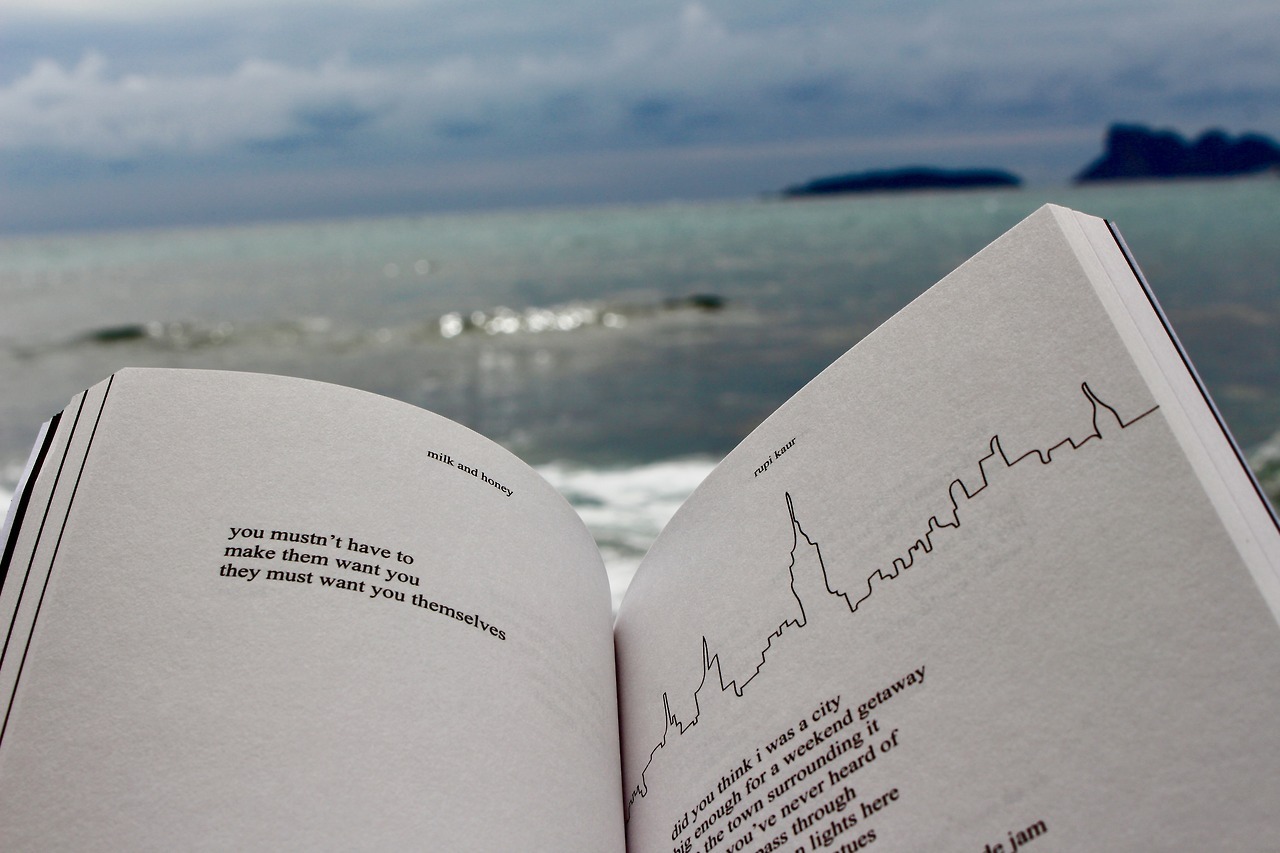 milk and honey
you mustn't have to
make them want you
they must want you themselves
rupi kaur
did you think i was a city
big enough for a weekend getaway
the town surrounding it
you've never heard of
pass through
lights here
jam